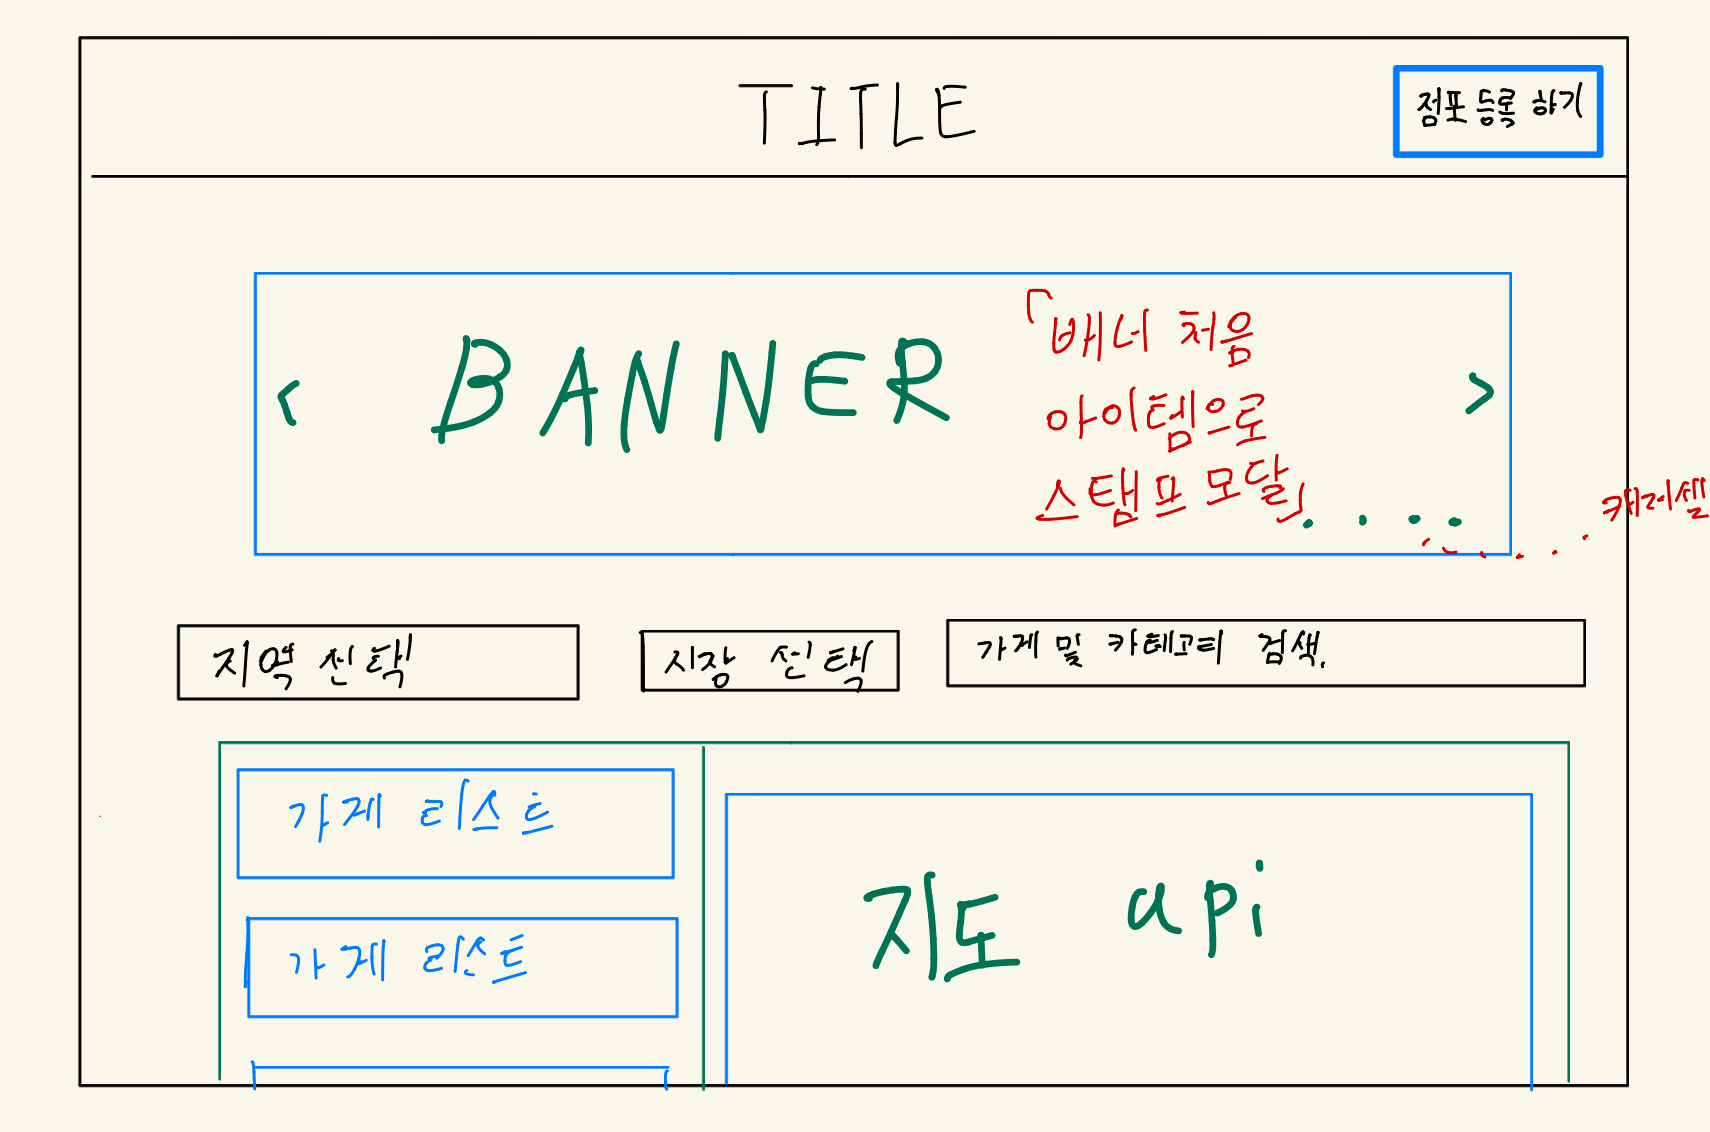 TITLE
점포 등록 하기
< BANNER >
「배너 처음
아이템으로
스탬프 모달」
캐러셀
지역 선택
시장 선택
가게 및 카테고리 검색.
가게 리스트
가게 리스트
지도 api